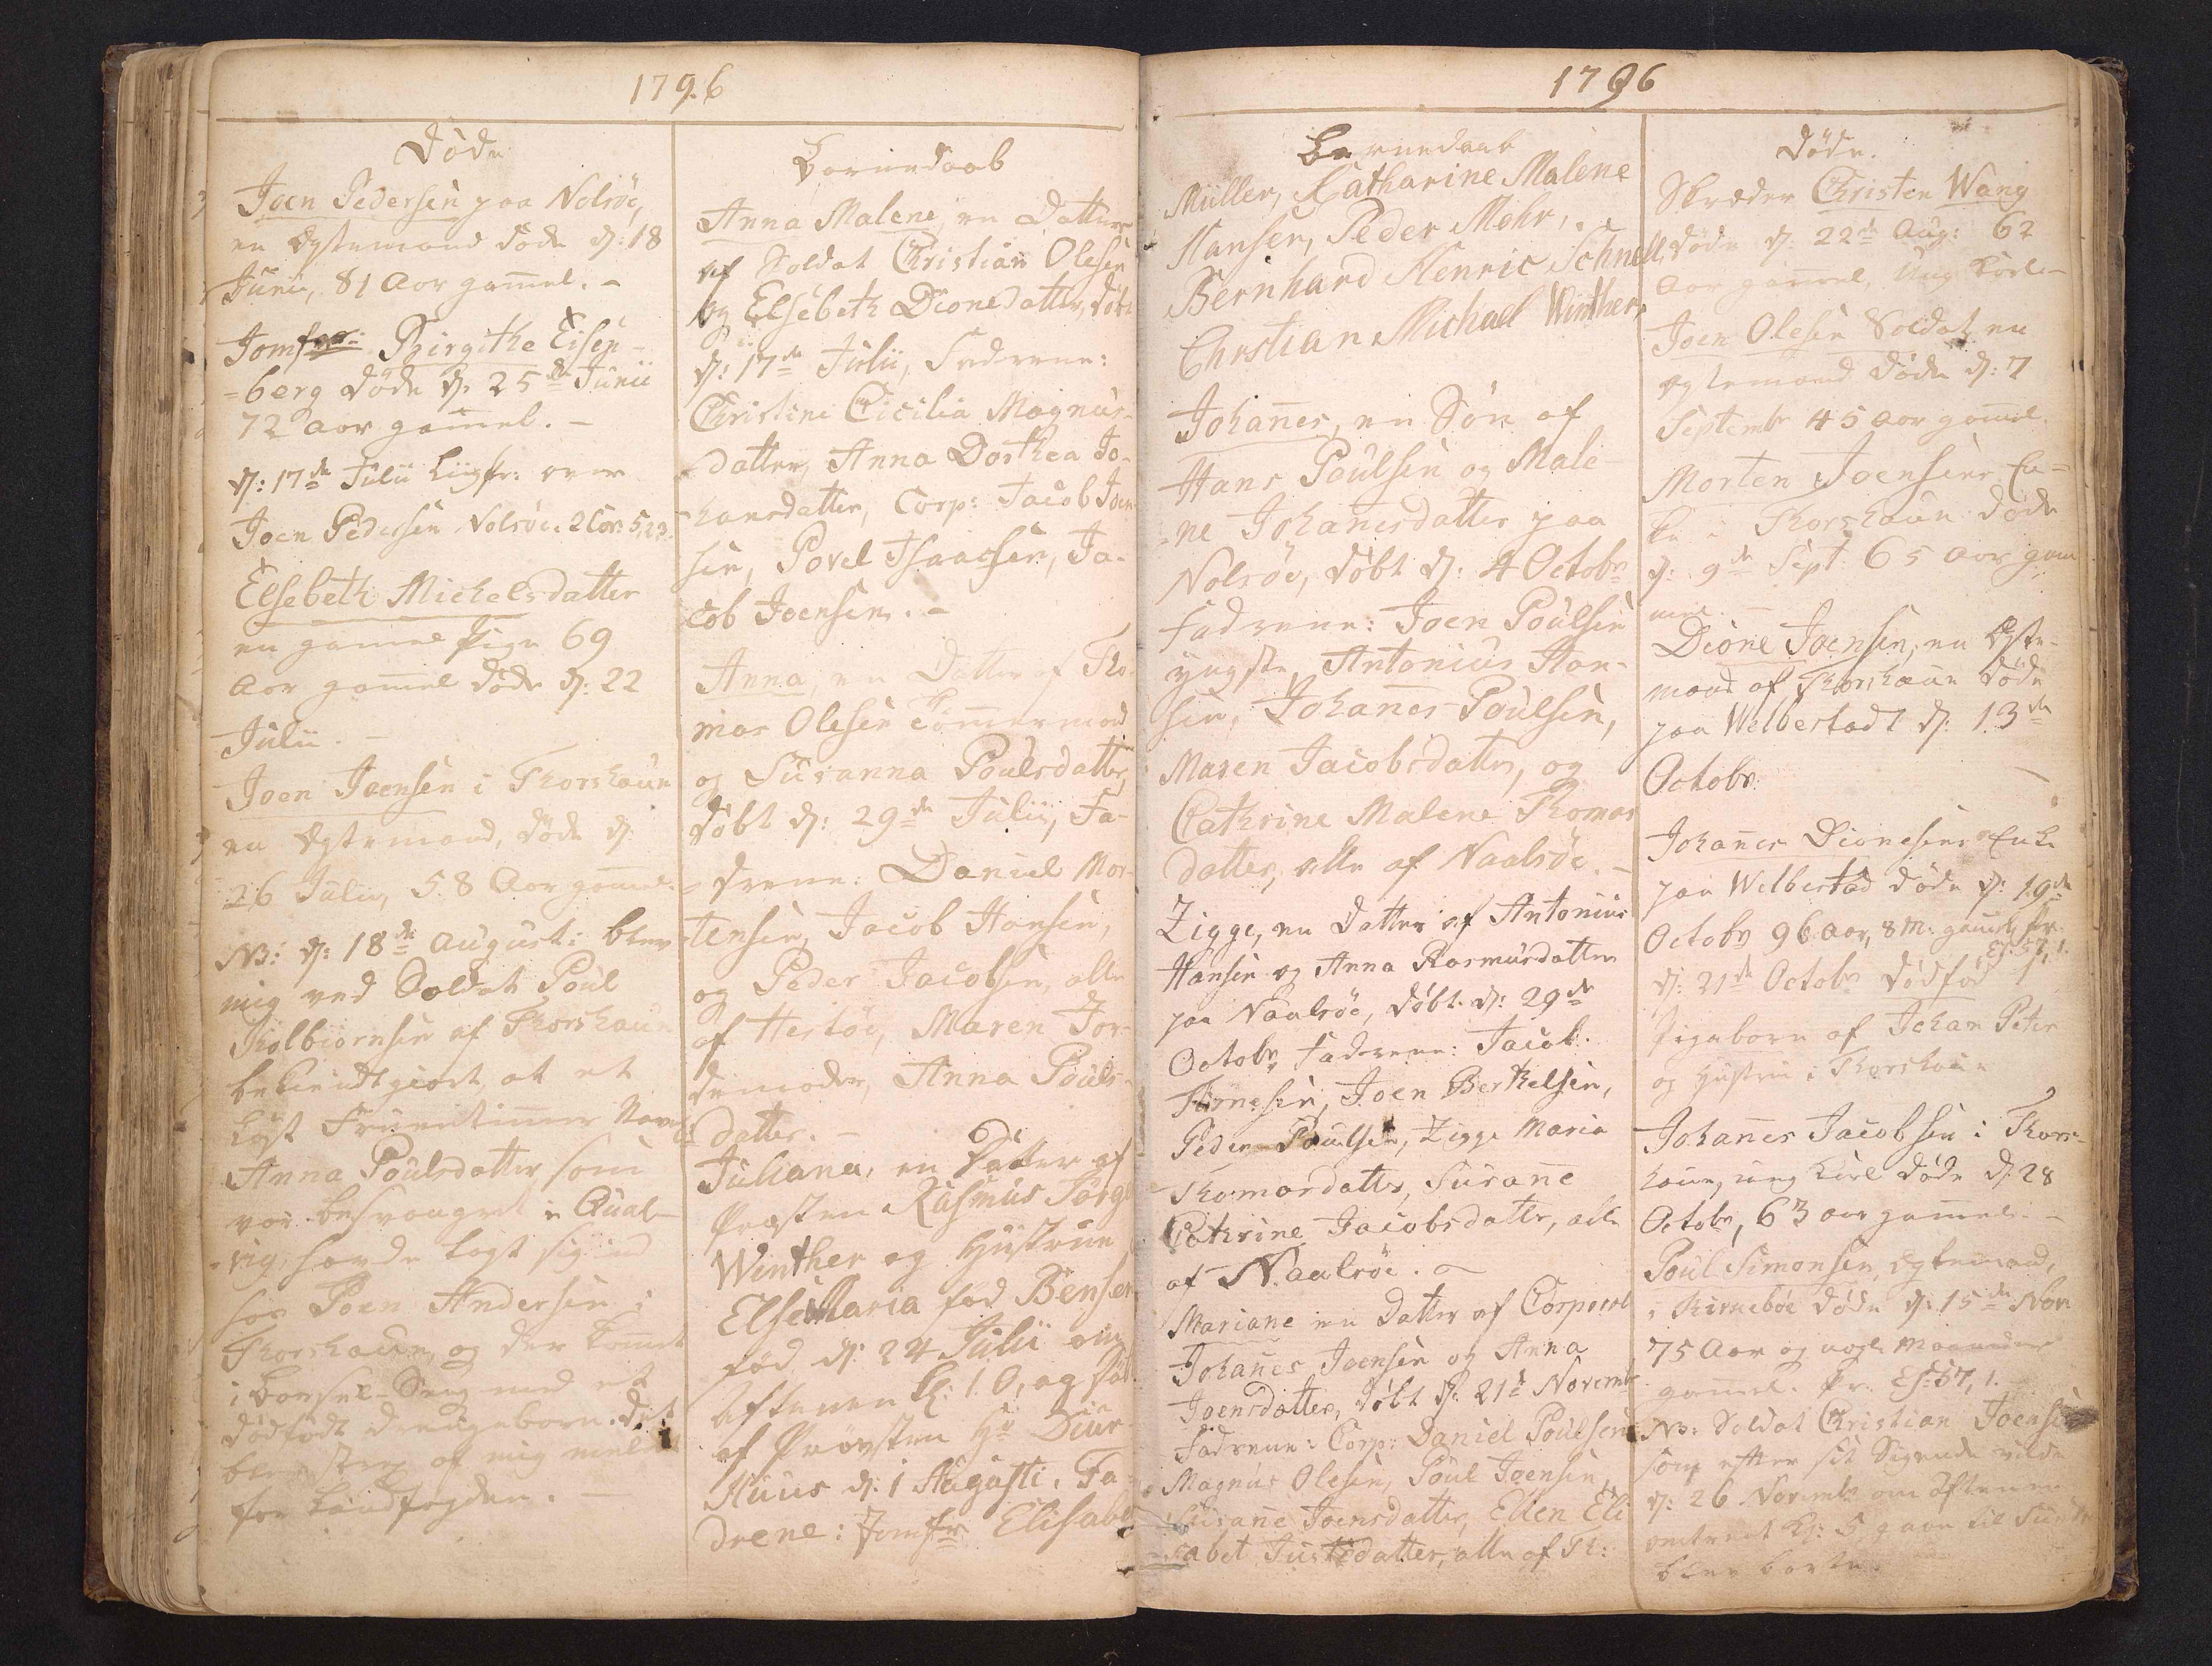 1796
Døde
Joen Pedersen paa Nolsöe,
en Egtemand døde d: 18
Junii, 81 Aar gam̄el. -
Jomfr: Birgithe Eisen-
-berg døde d: 25de Junii
72 Aar gam̄el. -
d: 17de Julii Liigpr: over
Joen Pedersen Nolsöe. 2 Cor: 5, 23.
Elsebeth Michelsdatter
en gam̄el Pige 69
Aar gam̄el døde d: 22
Julii. -
Joen Joensen i Thorshaun
en Egtemand, døde d:
26 Julii, 58 Aar gam̄el.
NB: d: 18de Augusti blev
mig ved Soldat Poul
Kolbiörnsen af Thorshaun
bekiendtgiort, at et
løst Fruentim̄er Navn
Anna Poulsdatter som
var besvangret i Qual-
-vig, havde lagt sig ind
hos Poen Andersen i
Thorshaun, og der kom̄et
i Barsel-Seng med et
dødfødt Drengebarn. Det
blev strax af mig meldt
for Landfogden. -
Barnedaab
Anna Malene, en Datter
af Soldat Christian Olesen
og Elsebeth Dionesdatter, døbt
d: 17de Julii, Fadrene:
Christine Cicilia Magnus-
datter, Anna Dorthea Jo-
hansdatter, Corp: Jacob Joen-
sen, Povel Isaacsen, Ja-
cob Joensen. -
Anna, en Datter af Tho-
mas Olesen Töm̄ermand
og Susanna Poulsdatter,
døbt d: 29de Julii, Fa-
drene: Daniel Mor-
tensen, Jacob Hansen,
og Peder Jacobsen, alle
af Hestöe, Maren Jor-
demoder, Anna Pouls-
datter. -
Juliana, en Datter af
Præsten Rasmus Jörg:
Winther og Hustrue
Else Maria fød Bensen
fød d: 24 Julii om
Aftenen Kl: 10, og døbt
af Provsten Hr Diur-
Huus d: 1 Augusti. Fa-
drene: Jomfr Elisabet
1796
Barnedaab
Müller, Catharine Malene
Hansen, Peder Mohr,
Bernhard Henric Schnell,
Chrstian Michael Winther.
Johan̄es, en Sön af
Hans Poulsen og Male-
-ne Johan̄esdatter paa
Nolsöe, døbt d: 4 Octobr
Fadrene: Joen Poulsen
yngste, Antonius Han-
sen, Johan̄es Poulsen,
Maren Jacobsdatter, og
Cathrine Malene Thomas
datter, alle af Naalsöe. -
Zigge, en Datter af Antonius
Hansen og Anna Rasmusdatter
paa Naalsöe, døbt d: 29de
Octobr, Fadrene: Jacob
Joensen, Joen Berthelsen,
Peder Poulsen, Zigge Maria
Thomasdatter, Susan̄e
Cathrine Jacobsdatter, alle
af Naalsöe.
Mariane en Datter af Corporal
Johan̄es Joensen og Anna
Joensdatter, døbt d: 21de Novembr
Fadrene: Corp: Daniel Poulsen
Magnus Olesen, Poul Joensen,
Susan̄e Joensdatter, Ellen Eli-
sabet Justsdatter, alle af Th:
Døde.
Skræder Christen Wang
døde d: 22de Aug: 62
Aar gam̄el, Ung Karl -
Joen Olesen Soldat en
Egtemand døde d: 7
Septembr 45 Aar gam̄el.
Morten Joensens En-
ke i Thorshaun døde
d: 9de Sept: 65 Aar gam
mel. -
Dione Joensen, en Egte-
mand af Thorshaun døde
paa Welbestadt d: 13de
Octobr.
Johan̄es Dionesens Enke
paa Welbestad døde d: 19de
Octobr 96 Aar, 8 M: gam̄el, Pr.
Es: 57, 1.
d: 21de Octobr dødfød 1
Pigebarn af Johan Peter
og Hustrue i Thorshaun
Johan̄es Jacobsen i Thors-
haun, ung Karl døde d: 28
Octobr, 63 Aar gam̄el. -
Poul Simonsen, Egtemand,
i Kirkebøe døde d: 15de Nov:
75 Aar og nogle Maaneder
gam̄el. Pr. Es: 57, 1.
NB: Soldat Christian Joensen
som efter sit Sigende vilde
d: 26 Novembr om Aftenen
omtrent Kl: 5 gaae til Sund
blev borte.